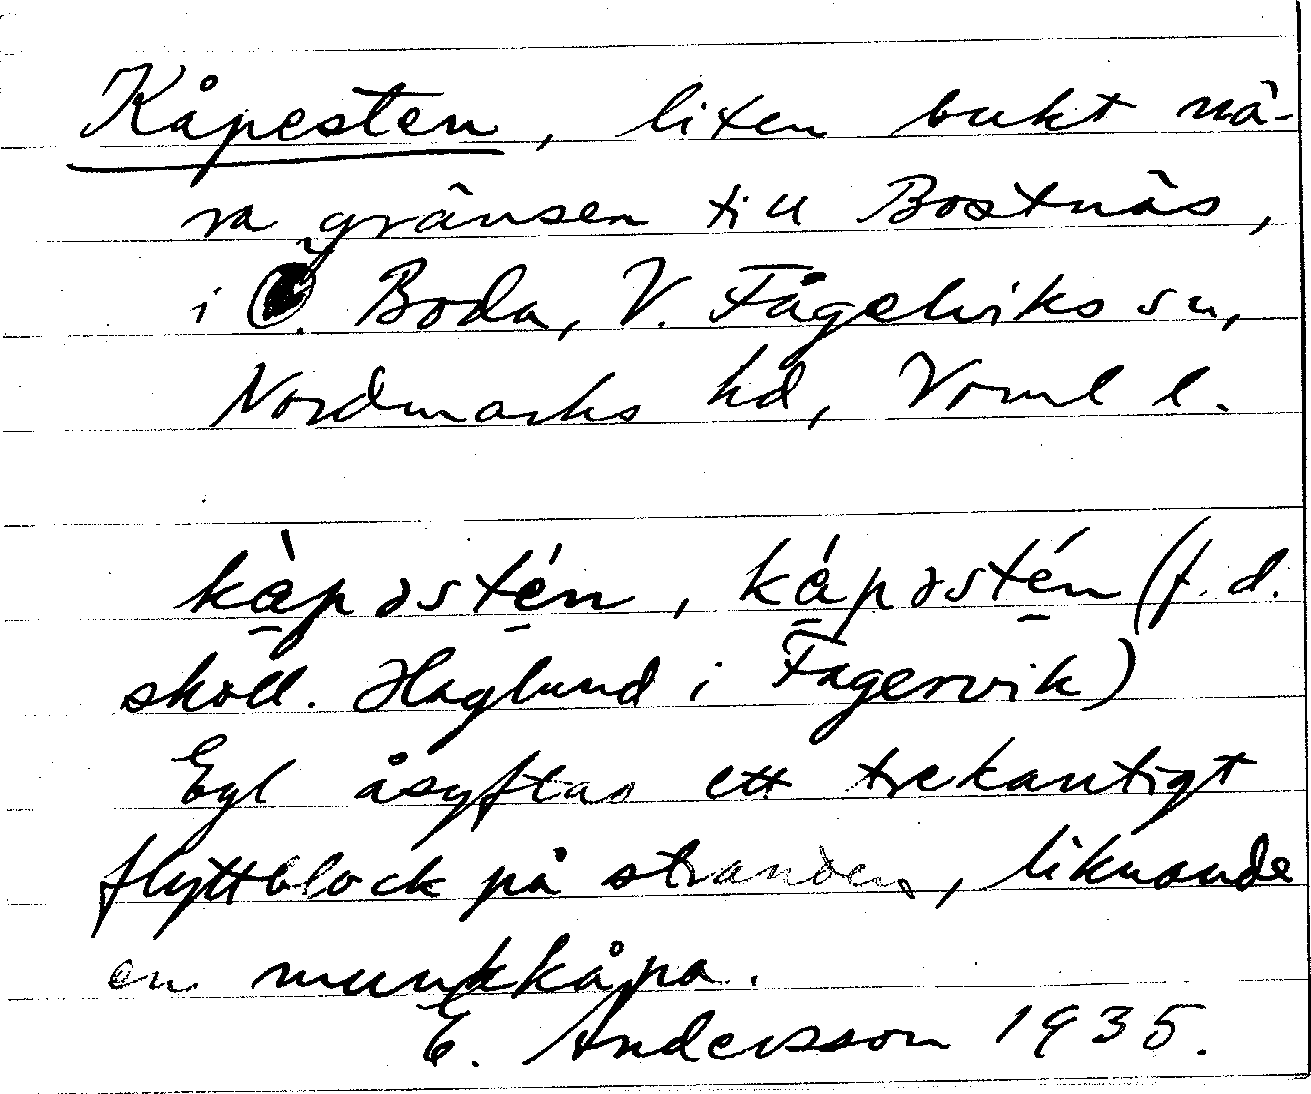 Kåpesten, liten bukt nä-
ra gränsen till Bostnäs,
i Ö. Boda, V. Fågelviks sn,
Nordmarks hd, Vrml l.
kàpəstén, kápəstén (f.d.
skoll. Haglund i Fagervik)
Egl åsyftas ett trekantigt
flyttblock på stranden, liknande
en munkkåpa.
E. Andersson 1935.